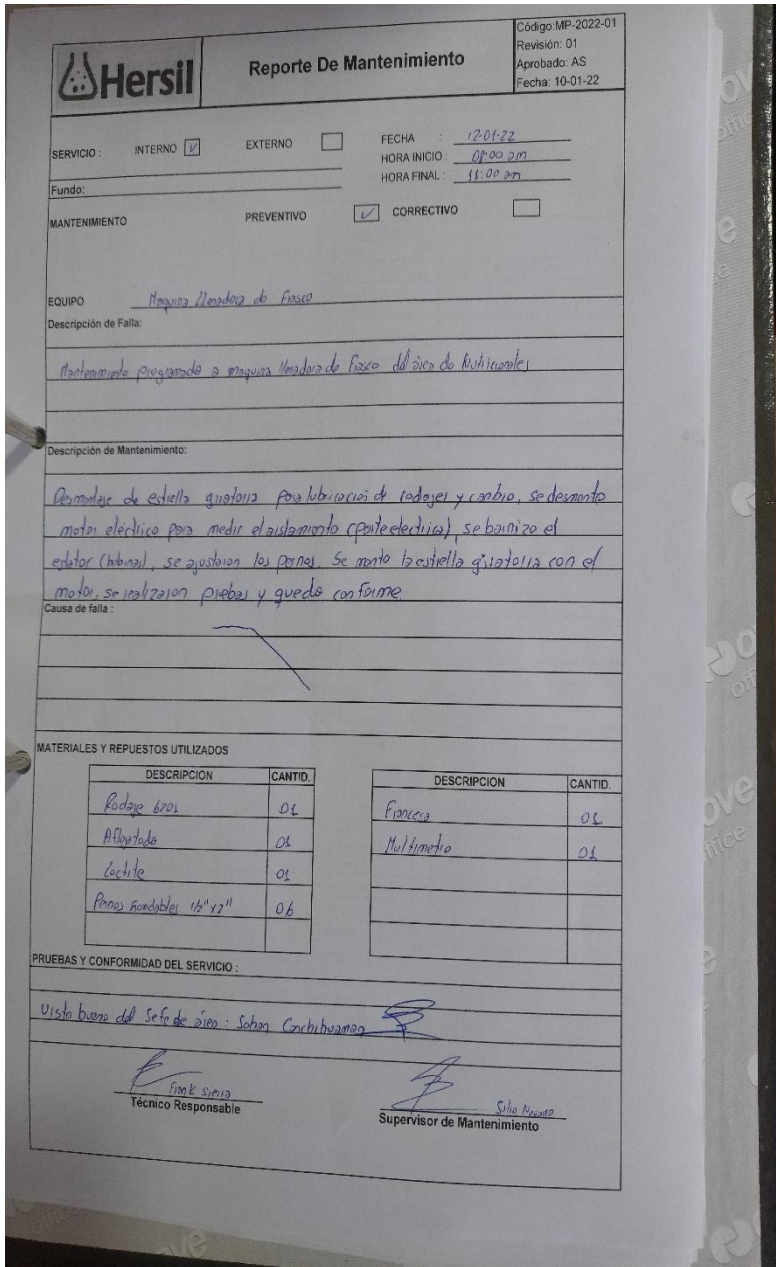 Hersil
Reporte De Mantenimiento
Código:MP-2022-01
Revisión: 01
Aprobado: AS
Fecha: 10-01-22
SERVICIO : INTERNO ✓ EXTERNO
FECHA : 12-01-22
HORA INICIO : 08:00 am
HORA FINAL : 11:00 am
Fundo:
MANTENIMIENTO PREVENTIVO ✓ CORRECTIVO
EQUIPO Maquina llenadora de Frasco
Descripción de Falla:
Mantenimiento programado a maquina llenadora de Frasco del área de Nutricionales
Descripción de Mantenimiento:
Desmontaje de estrella giratoria para lubricacion de rodajes y cambio, se desmonto
motor eléctrico para medir el aislamiento (parte electrica), se barnizo el
estator (bobina), se ajustaron los pernos. Se monto la estrella giratoria con el
motor, se realizaron pruebas y quedo conforme.
Causa de falla :
MATERIALES Y REPUESTOS UTILIZADOS
DESCRIPCION CANTID.
Rodaje 6201 01
Aflojatodo 01
Loctite 01
Pernos 1/2" x 2" 06
DESCRIPCION CANTID.
Francesa 01
Multimetro 01
PRUEBAS Y CONFORMIDAD DEL SERVICIO :
Visto bueno del Jefe de área : Johan Conchihuaman
Frank Sierra
Técnico Responsable
Navarro
Supervisor de Mantenimiento
ove
office